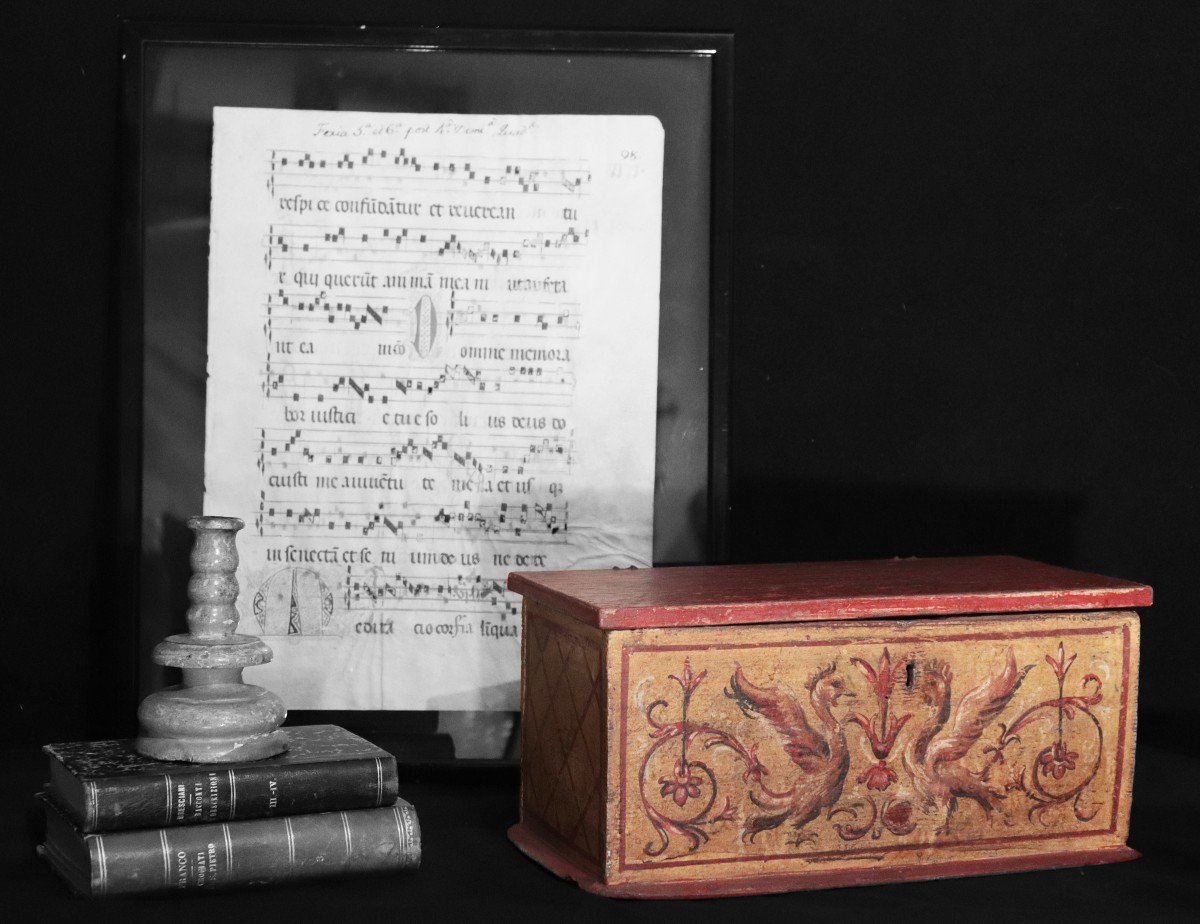 Feria 5ª et 6ª post
98
respi ce confūdātur et reuerean tu
r qui querūt animā meam ut auferā
ut ea meō D omine memora
bor iustici e tue so li us deus do
cuisti me a iuuētu te me a et usqȝ
in senectā et se ni um de us ne de re
M edita cio cor
BRESCIANI
RACCONTI
III-IV.
FRANCO
CROBATI
S. PIETRO